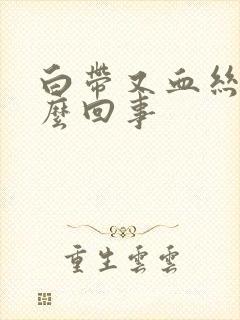 白帶又血絲
麼回事
重生雲雲